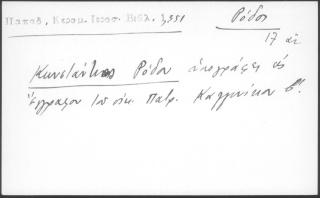 Παπαδ. Κεραμ. Ιεροσ. Βιβλ. 3,351 Ρόδοι
17 αι
Κωνσταντῖνος Ρόδου ὑπογράφει εἰς
ἔγγραφον τοῦ οἰκ. Πατρ. Καλλινίκου Β'.